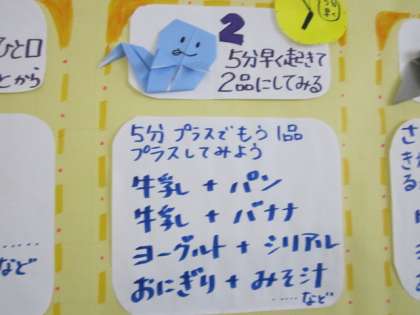 ひと口
とから
……
など
2
5分早く起きて
2品にしてみる
5分プラスでもう1品
プラスしてみよう
牛乳 + パン
牛乳 + バナナ
ヨーグルト + シリアル
おにぎり + みそ汁
……など
さ
き
る